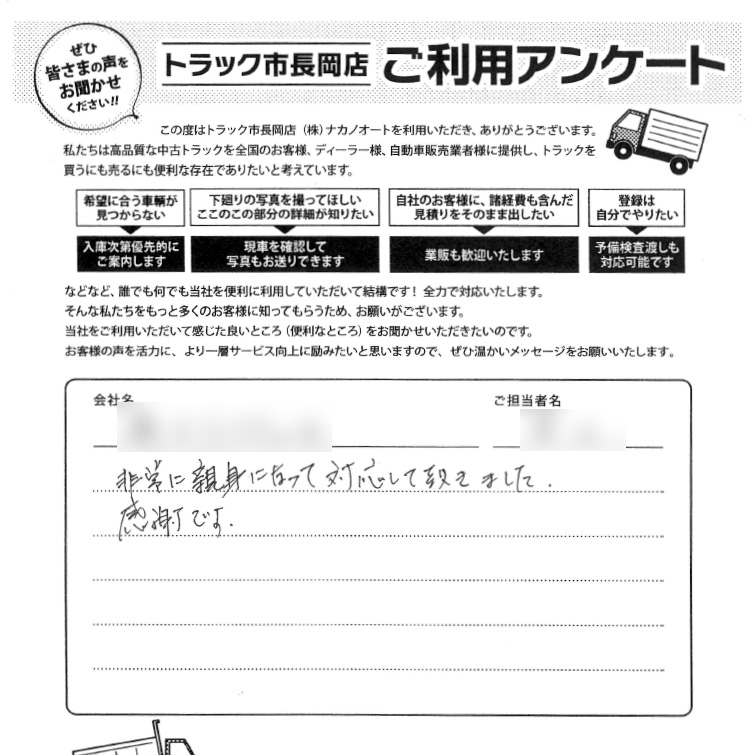 ぜひ
皆さまの声を
お聞かせ
ください!!
トラック市長岡店 ご利用アンケート
この度はトラック市長岡店（株）ナカノオートを利用いただき、ありがとうございます。
私たちは高品質な中古トラックを全国のお客様、ディーラー様、自動車販売業者様に提供し、トラックを
買うにも売るにも便利な存在でありたいと考えています。
希望に合う車輌が
見つからない
入庫次第優先的に
ご案内します
下廻りの写真を撮ってほしい
ここのこの部分の詳細が知りたい
現車を確認して
写真もお送りできます
自社のお客様に、諸経費も含んだ
見積りをそのまま出したい
業販も歓迎いたします
登録は
自分でやりたい
予備検査渡しも
対応可能です
などなど、誰でも何でも当社を便利に利用していただいて結構です！全力で対応いたします。
そんな私たちをもっと多くのお客様に知ってもらうため、お願いがございます。
当社をご利用いただいて感じた良いところ（便利なところ）をお聞かせいただきたいのです。
お客様の声を活力に、より一層サービス向上に励みたいと思いますので、ぜひ温かいメッセージをお願いいたします。
会社名 ご担当者名
非常に親身になって対応して頂きました.
感謝です.